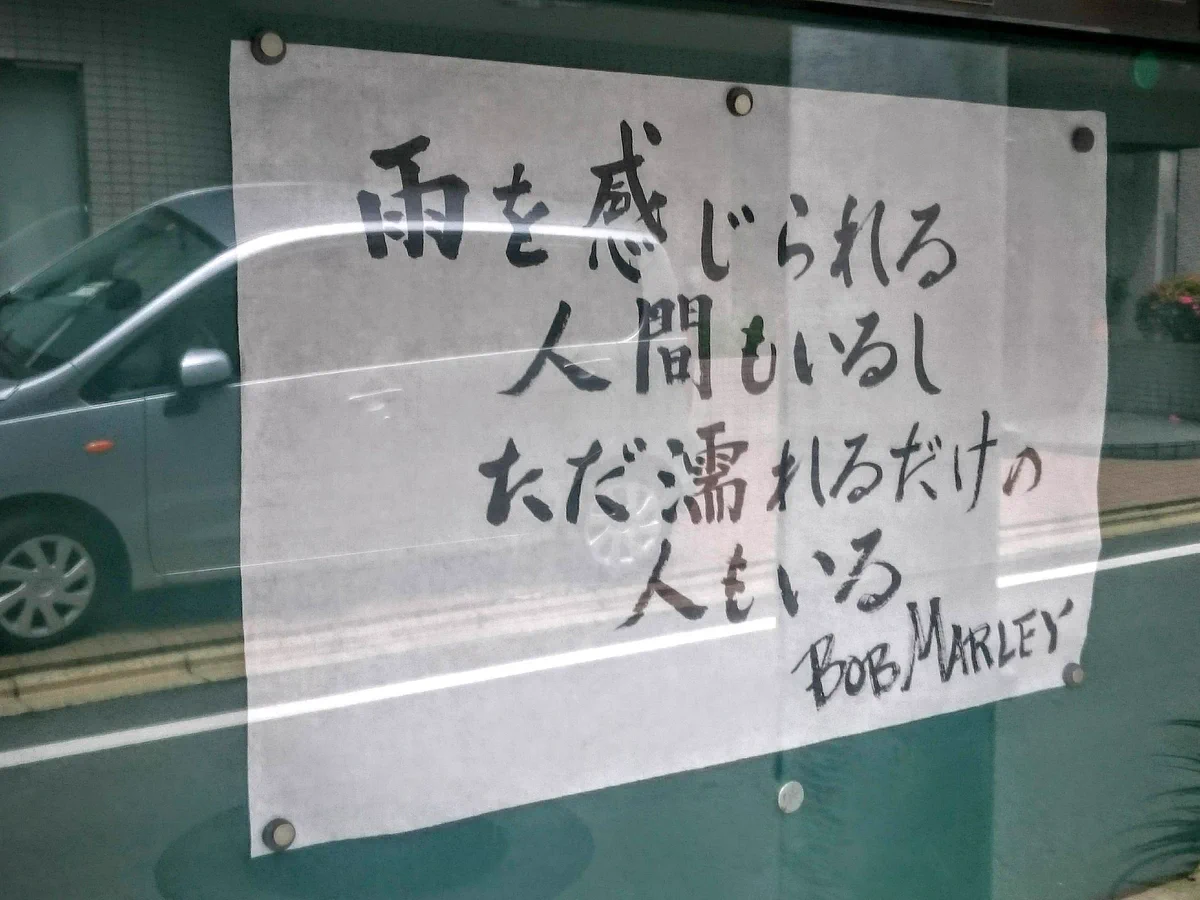 雨を感じられる
人間もいるし
ただ濡れるだけの
人もいる
BOB MARLEY